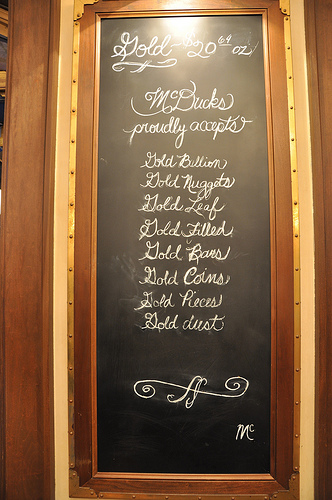 Gold - $20 64 oz
McDucks
proudly accepts
Gold Billion
Gold Nuggets
Gold Leaf
Gold Filled
Gold Bars
Gold Coins
Gold Pieces
Gold dust
Mc